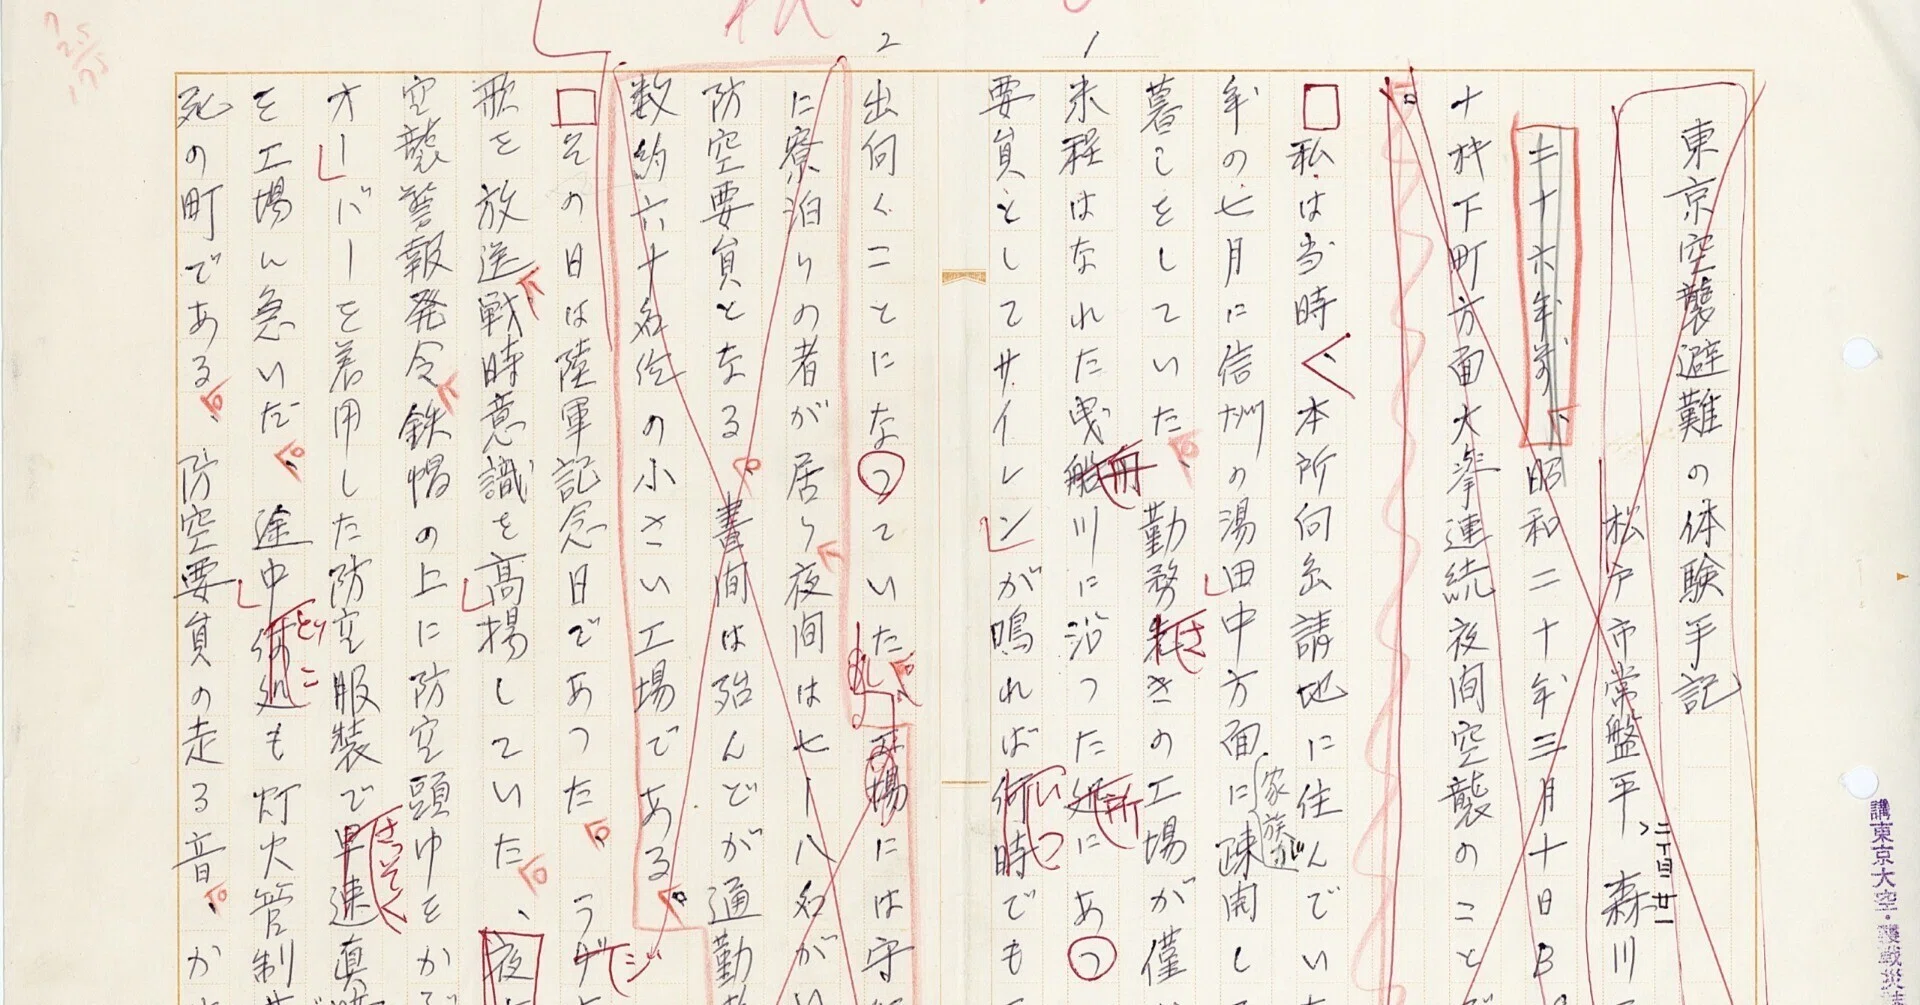 1
東京空襲避難の体験手記
松戸市常盤平 二丁目廿一 森川
三十六年前、昭和二十年三月十日B
十粁下町方面大挙連続夜間空襲のこと
私は当時、本所向島請地に住んでい
年の七月に信州の湯田中方面に家族が疎開し
暮しをしていた、勤務先さきの工場が僅
米程はなれた曳船川に沿った処所にあっ
要員としてサイレンが鳴れば何時いつでも
2
出向くことになっていた、工場には守
に寮泊りの者が居り夜間は七ー八名がい
防空要員となる。昼間は殆んどが通勤
数約六十名位の小さい工場である。
その日は陸軍記念日であった。ラジ
歌を放送戦時意識を高揚していた。、夜
空襲警報発令鉄帽の上に防空頭巾をかぶ
オーバーを着用した防空服装で早速さっそく真
を工場へ急いだ、。途中何処どこも灯火管制
死の町である。、防空要員の走る音。、か
講東京大空襲戦災